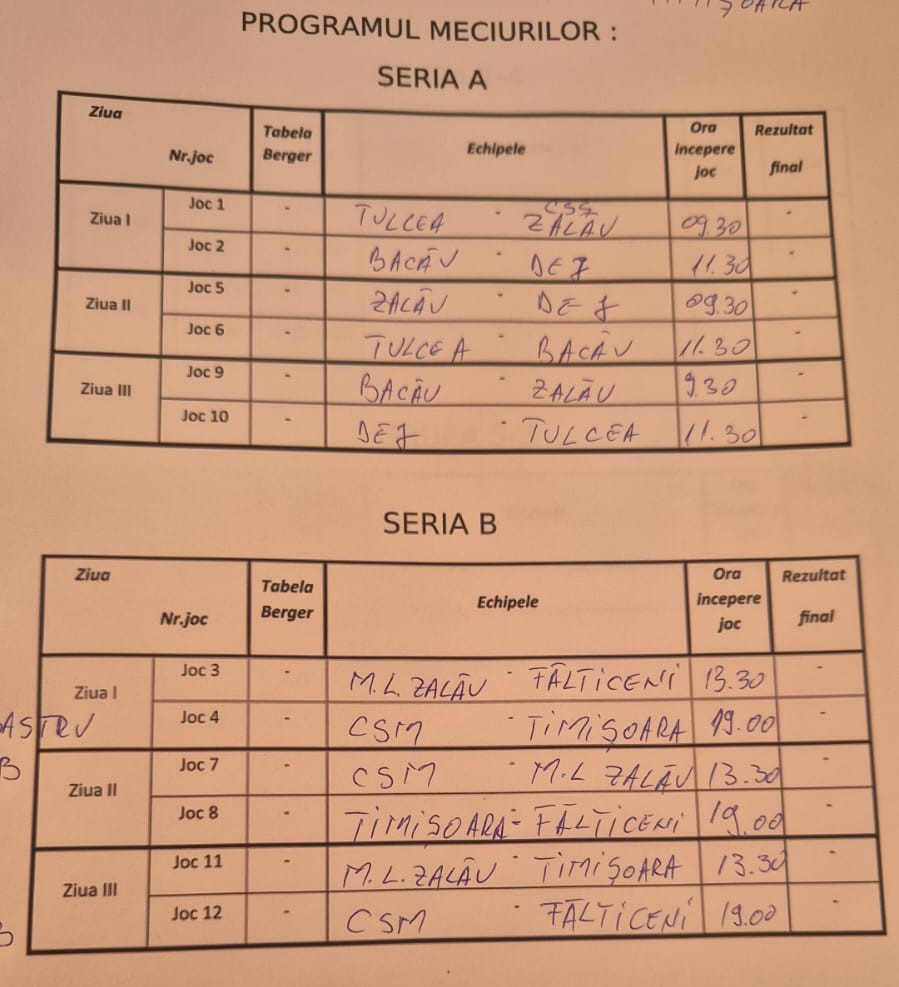 PROGRAMUL MECIURILOR :
SERIA A
Ziua Nr.joc Tabela Berger Echipele Ora incepere joc Rezultat final
Ziua I Joc 1 - TULCEA - CSS ZALĂU 09.30 -
Joc 2 - BACĂU - DEJ 11.30 -
Ziua II Joc 5 - ZALĂU - DEJ 09.30 -
Joc 6 - TULCEA - BACĂU 11.30 -
Ziua III Joc 9 - BACĂU - ZALĂU 9.30 -
Joc 10 - DEJ - TULCEA 11.30 -
SERIA B
Ziua Nr.joc Tabela Berger Echipele Ora incepere joc Rezultat final
Ziua I Joc 3 - M.L. ZALĂU - FĂLTICENI 13.30 -
Joc 4 - CSM - TIMIȘOARA 19.00 -
Ziua II Joc 7 - CSM - M.L ZALĂU 13.30 -
Joc 8 - TIMIȘOARA - FĂLTICENI 19.00 -
Ziua III Joc 11 - M.L. ZALĂU - TIMIȘOARA 13.30 -
Joc 12 - CSM - FĂLTICENI 19.00 -